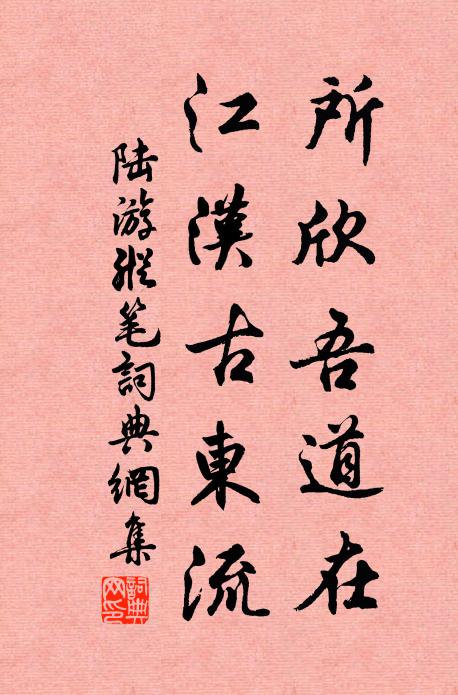 所欣吾道在
江漢古東流
陸游縱笔詞典網集
詞典网印